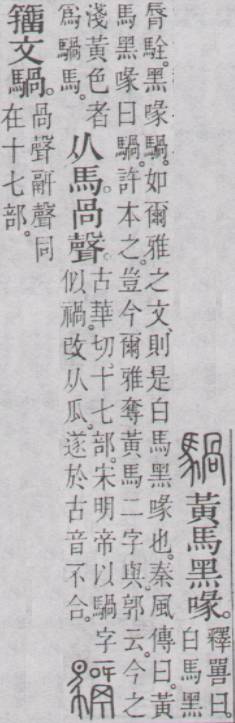 騧 黃馬黑喙。
釋嘼曰。
白馬黑
脣駩。黑喙騧。如爾雅之文。則是白馬黑喙也。秦風傳曰。黃
馬黑喙曰騧。許本之。豈今爾雅奪黃馬二字與。郭云。今之
淺黃色者
爲騧馬。
从馬咼聲。
古華切。十七部。宋明帝以騧字
似禍。改从瓜。遂於古音不合。
籒文騧。
咼聲聲同
在十七部。